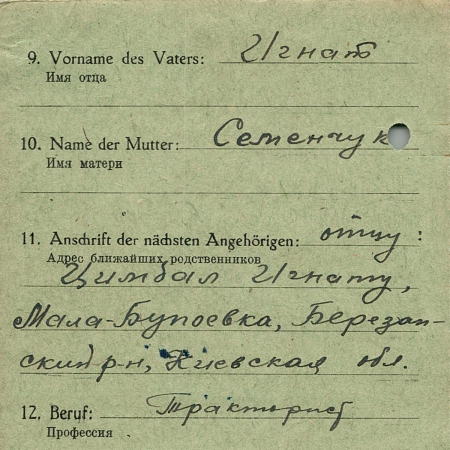 9. Vorname des Vaters: Игнат
Имя отца
10. Name der Mutter: Семенчук
Имя матери
11. Anschrift der nächsten Angehörigen: отцу:
Адрес ближайших родственников
Цимбал Игнату,
Мала-Бупоевка, Березан-
ский р-н, Киевская обл.
12. Beruf: Тракторист
Профессия